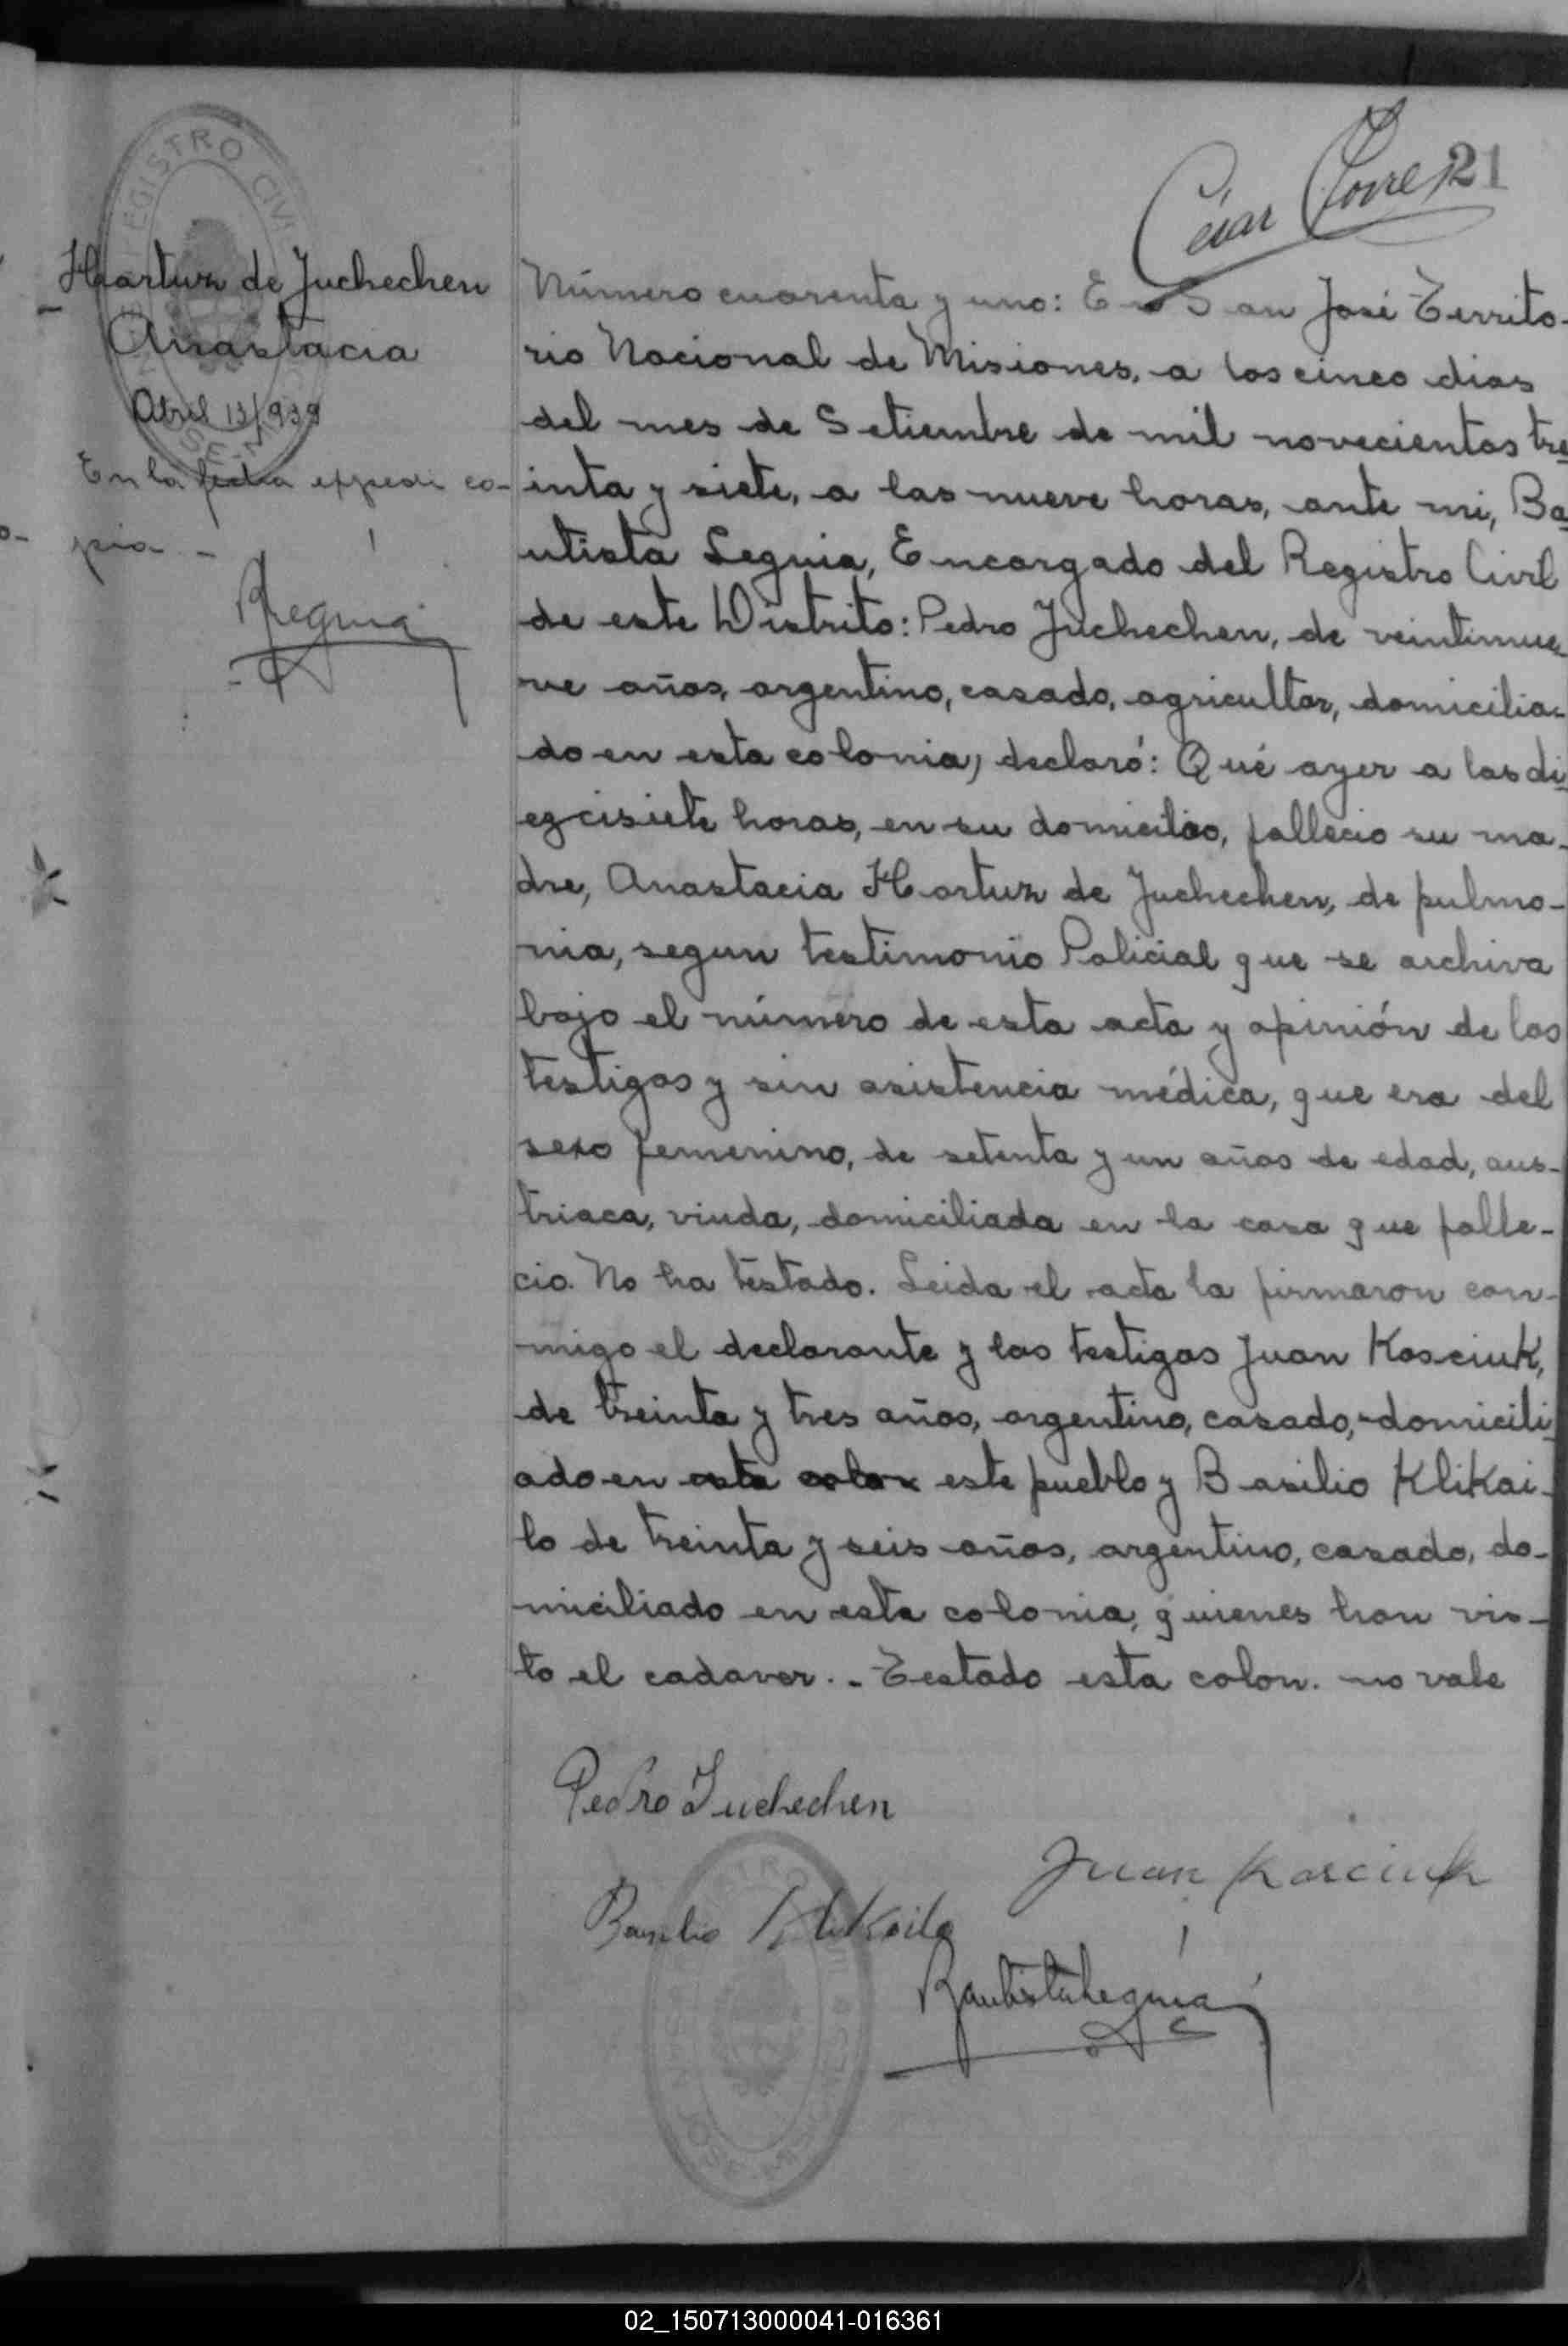 César Torres 21
Hartun de Juchechen
Anastacia
Abril 13/939
En la fecha expedi co-
pia. -
BLeguia
Número cuarenta y uno: En San José Territo-
rio Nacional de Misiones, a los cinco dias
del mes de Setiembre de mil novecientos tre
inta y siete, a las nueve horas, ante mi, Ba
utista Leguia, Encargado del Registro Civil
de este Distrito: Pedro Juchechen, de veintinue
ve años, argentino, casado, agricultor, domicilia-
do en esta colonia, declaró: Qué ayer a las di
ezcisiete horas, en su domicilio, fallecio su ma-
dre, Anastacia Hartun de Juchechen, de pulmo-
nia, segun testimonio Policial que se archiva
bajo el número de esta acta y opinión de los
testigos y sin asistencia médica, que era del
sexo femenino, de setenta y un años de edad, aus-
triaca, viuda, domiciliada en la casa que falle-
cio. No ha testado. Leida el acta la firmaron con-
migo el declarante y los testigos Juan Kosciuk,
de treinta y tres años, argentino, casado, domicili
ado en esta colon este pueblo y Basilio Klikai-
lo de treinta y seis años, argentino, casado, do-
miciliado en esta colonia, quienes han vis-
to el cadaver. - Testado esta colon. no vale
Pedro Juchechen
Juan Kosciuk
Basilio Klikailo
Bautista Leguia
REGISTRO CIVIL
SAN JOSE-MISIONES
02_150713000041-016361